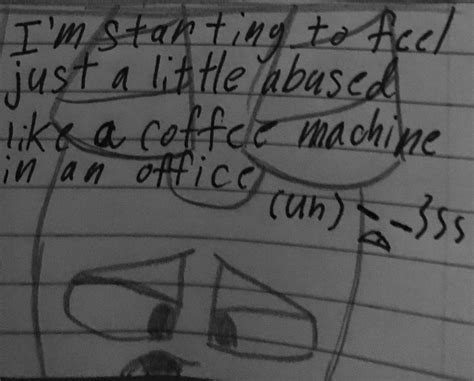 I'm starting to feel
just a little abused
like a coffee machine
in an office
(uh)